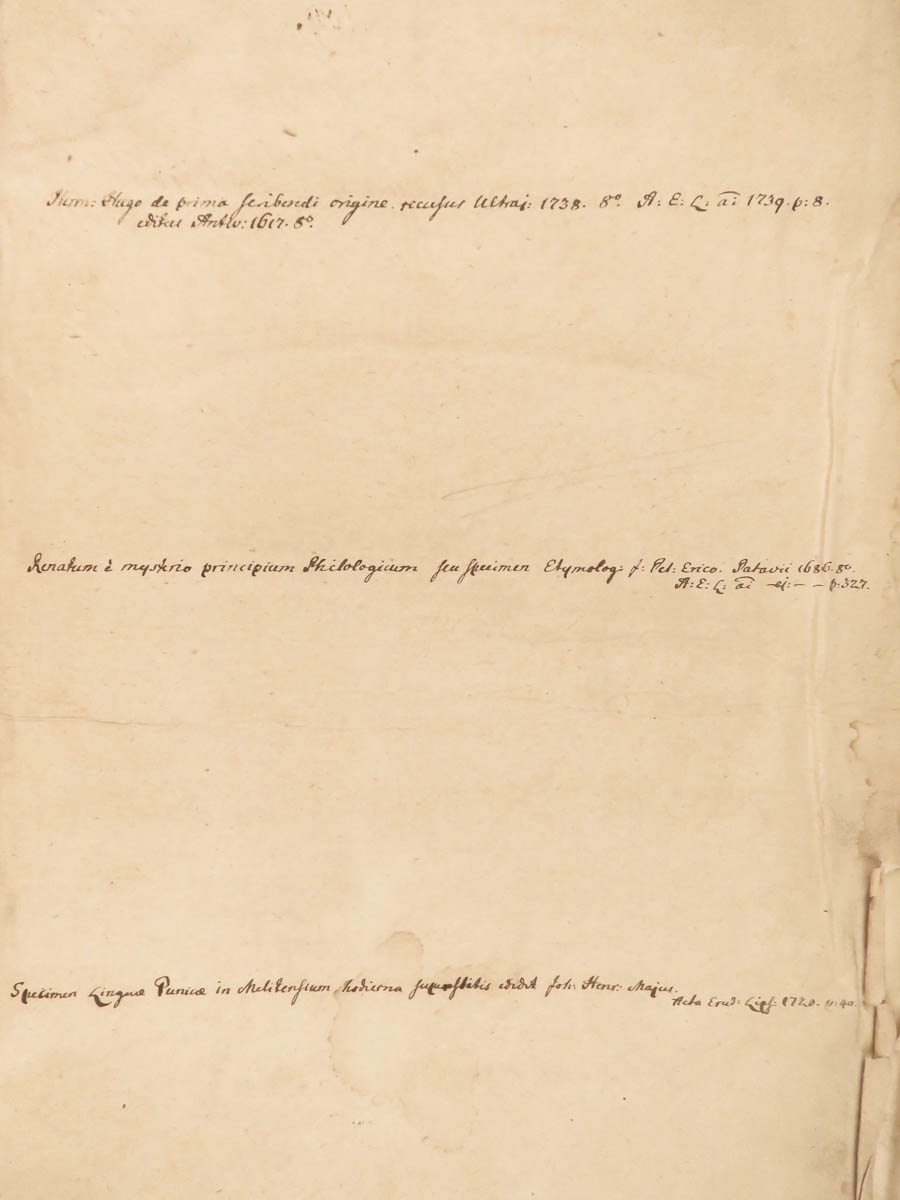 Herm: Hugo de prima scribendi origine. recusus Ultraj: 1738. 8º. A: E: L: ai 1739. p: 8.
editus Antw: 1617. 8º.
Renatum è mysterio principium Philologicum seu specimen Etymolog: f: Pet: Erico. Patavii 1686. 8º.
A: E: L: ai – ej: – – p: 327.
Specimen Linguæ Punicæ in Melitensium hodierna superstitis edidit Joh: Henr: Majus.
Acta Erud: Lips: 1720. p: 40.